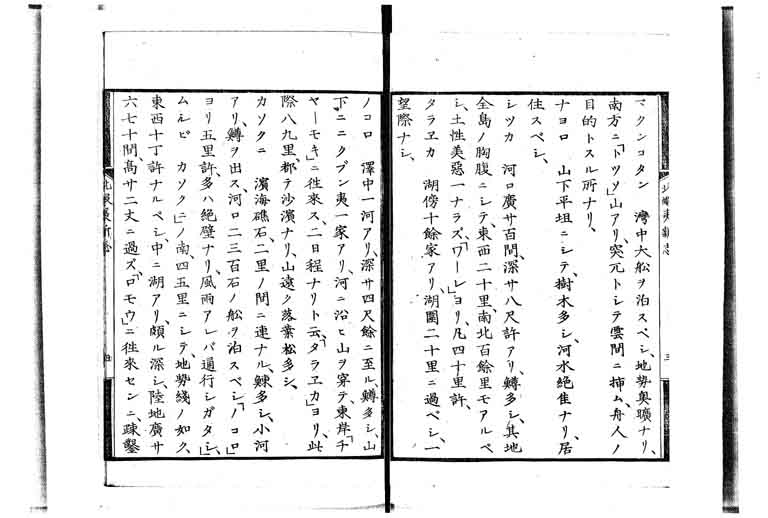 マクンコタン　灣中大船ヲ泊スベシ、地勢奧曠ナリ、
南方ニ「トツソ」山アリ、突兀トシテ雲間ニ挿ム、舟人ノ
目的トスル所ナリ、
ナヨロ　山下平坦ニシテ、樹木多シ、河水絶佳ナリ、居
住スベシ、
シツカ　河口廣サ百間、深サ八尺許アリ、鱒多シ、其地
全島ノ胸腹ニシテ、東西二十里、南北百餘里モアルベ
シ、土性美惡一ナラズ、「ワーレ」ヨリ、凡四十里許、
タラヱカ　湖傍十餘家アリ、湖圍二十里ニ過ベシ、一
望際ナシ、
北蝦夷新志
三
ノコロ　澤中一河アリ、深サ四尺餘ニ至ル、鱒多シ、山
下ニニクブン夷一家アリ、河ニ沿ヒ山ヲ穿テ、東岸「チ
ヤーモキ」ニ徃來ス、二日程ナリト云、「タラヱカ」ヨリ、此
際八九里、都テ沙濱ナリ、山遠ク落葉松多シ、
カソクニ　濱海礁石、二里ノ間ニ連ナル、鰊多シ、小河
アリ、鱒ヲ出ス、河口二三百石ノ船ヲ泊スベシ、「ノコロ」
ヨリ五里許、多ハ絶壁ナリ、風雨アレバ通行シガタシ、
ムシビ　カソクニノ南、四五里ニシテ、地勢綫ノ如ク、
東西十丁許ナルベシ、中ニ湖アリ、頗ル深シ、陸地廣サ
六七十間、高サ二丈ニ過ズ、「ロモウ」ニ徃來センニ、疎鑿
北蝦夷新志
四